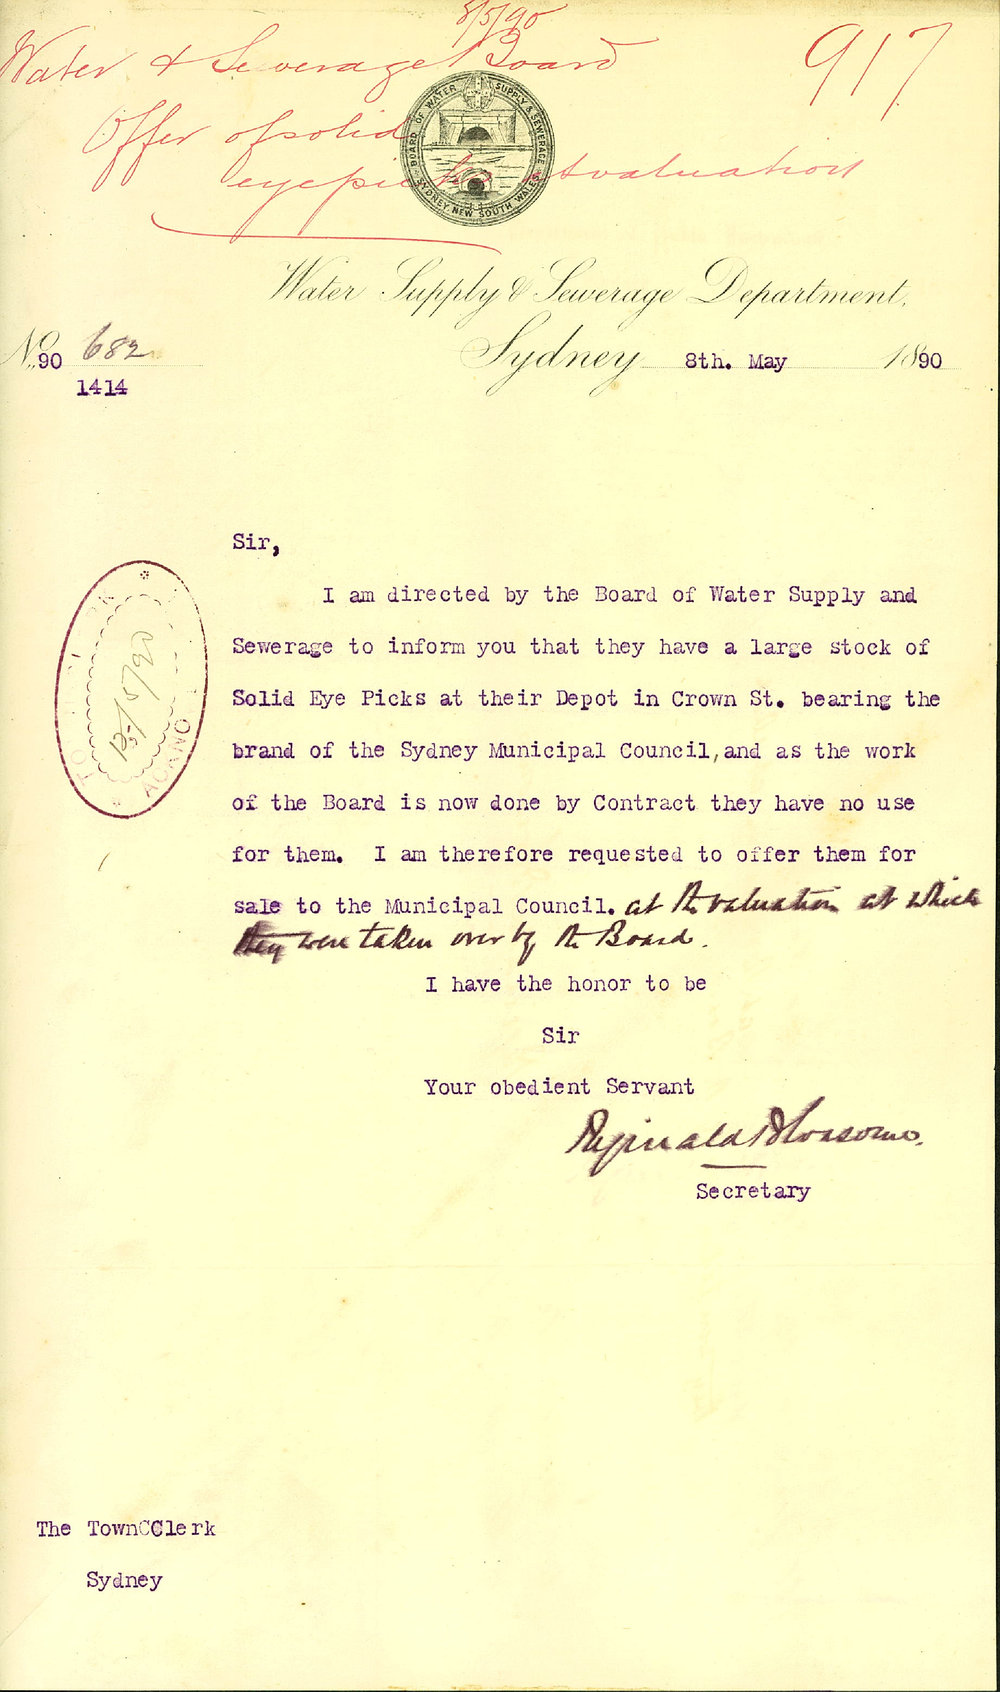 8/5/90
Water & Sewerage Board
917
Offer of solid
eyepicks at valuation
BOARD OF WATER SUPPLY & SEWERAGE
SYDNEY, NEW SOUTH WALES
Water Supply & Sewerage Department,
No. 90 682
1414
Sydney 8th. May 1890
Sir,
I am directed by the Board of Water Supply and
Sewerage to inform you that they have a large stock of
Solid Eye Picks at their Depot in Crown St. bearing the
brand of the Sydney Municipal Council,and as the work
of the Board is now done by Contract they have no use
for them. I am therefore requested to offer them for
sale to the Municipal Council. at the valuation at which
they were taken over by the Board.
I have the honor to be
Sir
Your obedient Servant
Reginald Blossome.
Secretary
The TownCClerk
Sydney